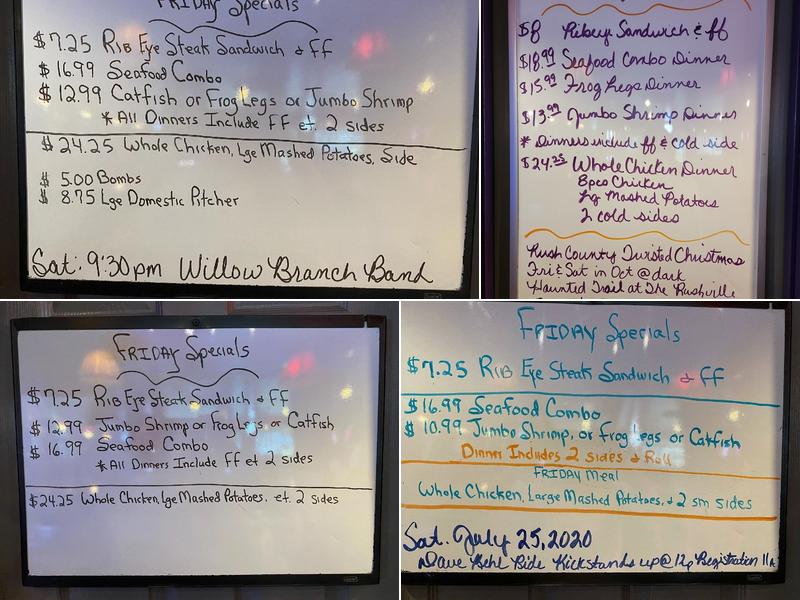 FRIDAY Specials
$7.25 Rib Eye Steak Sandwich & FF
$16.99 Seafood Combo
$12.99 Catfish or Frog Legs or Jumbo Shrimp
*All Dinners Include FF et. 2 sides
$24.25 Whole Chicken, Lge Mashed Potatoes, Side
$5.00 Bombs
$8.75 Lge Domestic Pitcher
Sat: 9:30pm Willow Branch Band
$8 Ribeye Sandwich & ff
$18.99 Seafood Combo Dinner
$15.99 Frog Legs Dinner
$13.99 Jumbo Shrimp Dinner
* Dinners include ff & cold side
$24.25 Whole Chicken Dinner
8pcs Chicken
Lg Mashed Potatoes
2 cold sides
Rush County Twisted Christmas
Fri & Sat in Oct @ dark
Haunted Trail at The Rushville
FRIDAY Specials
$7.25 Rib Eye Steak Sandwich & FF
$12.99 Jumbo Shrimp or Frog Legs or Catfish
$16.99 Seafood Combo
*All Dinners Include FF et 2 sides
$24.25 Whole Chicken, Lge Mashed Potatoes. et. 2 sides
FRIDAY Specials
$7.25 Rib Eye Steak Sandwich & FF
$16.99 Seafood Combo
$10.99 Jumbo Shrimp, or Frog Legs or Catfish
Dinner Includes 2 sides & Roll
FRIDAY Meal
Whole Chicken, Large Mashed Potatoes, & 2 sm sides
Sat. July 25, 2020
Dave Ride Kickstands up@12p Registration 11A